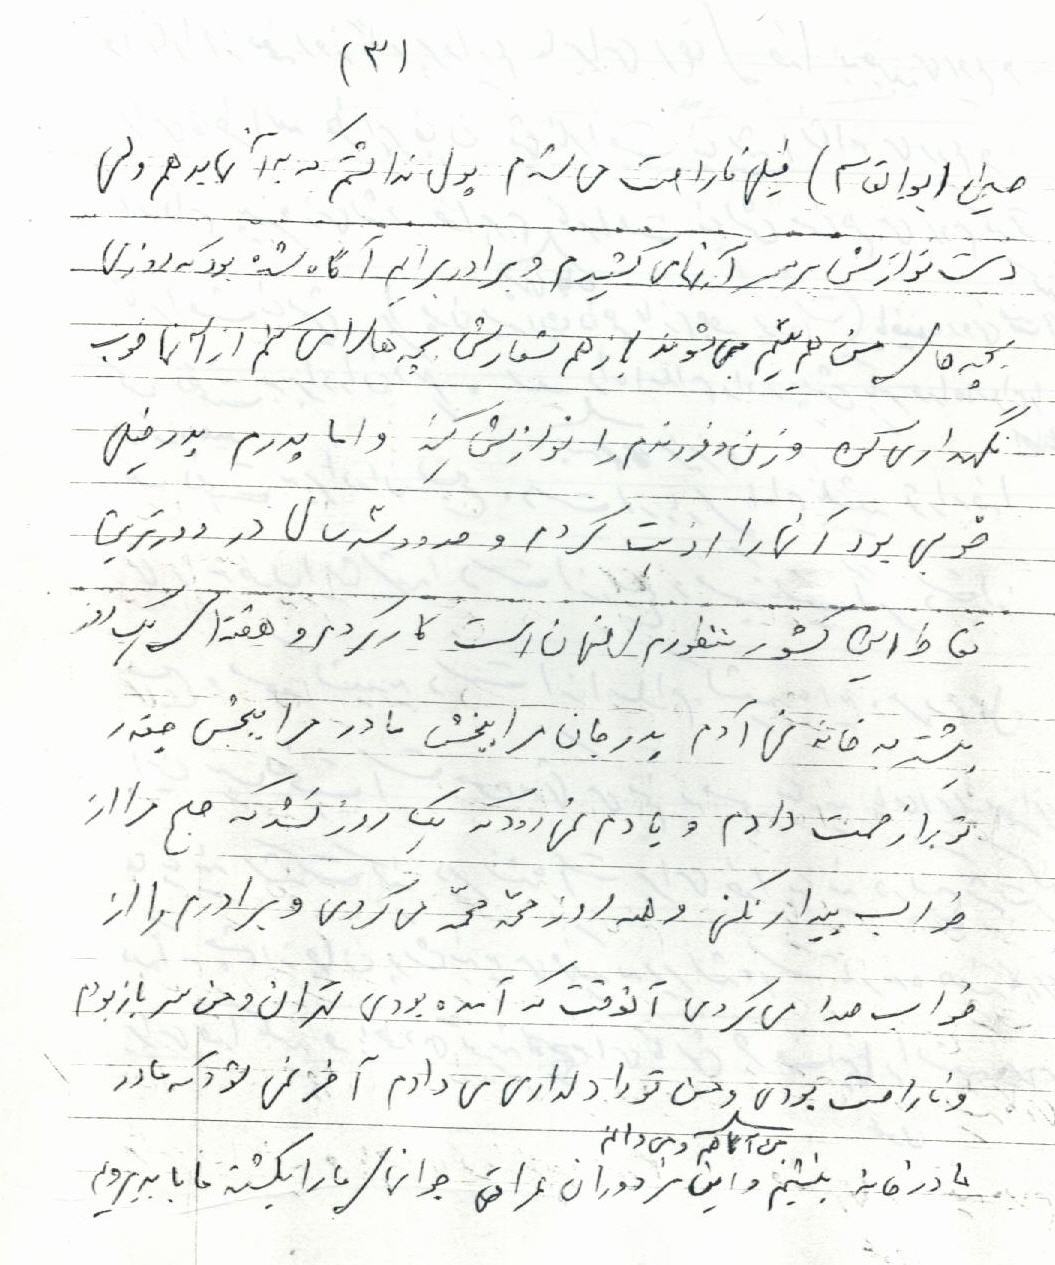 (۳)
(ابوالقاسم) خیلی ناراحت می شدم پول نداشتم که به آنها بدهم ولی
دست نوازش بر سر آنها می کشیدم و برادر برایم آگاه شده بود که روزی
بچه های من هم یتیم می شوند باز هم سفارش بچه ها را می کنم از آنها خوب
نگهداری کن و زن و فرزندم را نوازش کنید و اما پدرم پدر خیلی
خوبی بود آنها را اذیت کردم و حدود سه سال در دورترین
نقاط این کشور منظورم اصفهان است کار کردم و هفته ای یک روز
بیشتر به خانه نمی آمدم پدر جان مرا ببخش مادر مرا ببخش چقدر
تو را زحمت دادم و یادم نمی رود که یک روز نشد که صبح مرا از
خواب بیدار نکنی و همه روز محمد محمد می کردی و برادرم را از
خواب صدا می کردی آنوقت که آمده بودی تهران و من سرباز بودم
و ناراحت بودی و من تو را دلداری می دادم آخر نمی شود که مادر
من آگاهم و می دانم
ما در خانه بنشینیم و این مزدوران عراقی جوانهای ما را بکشند ما باید برویم